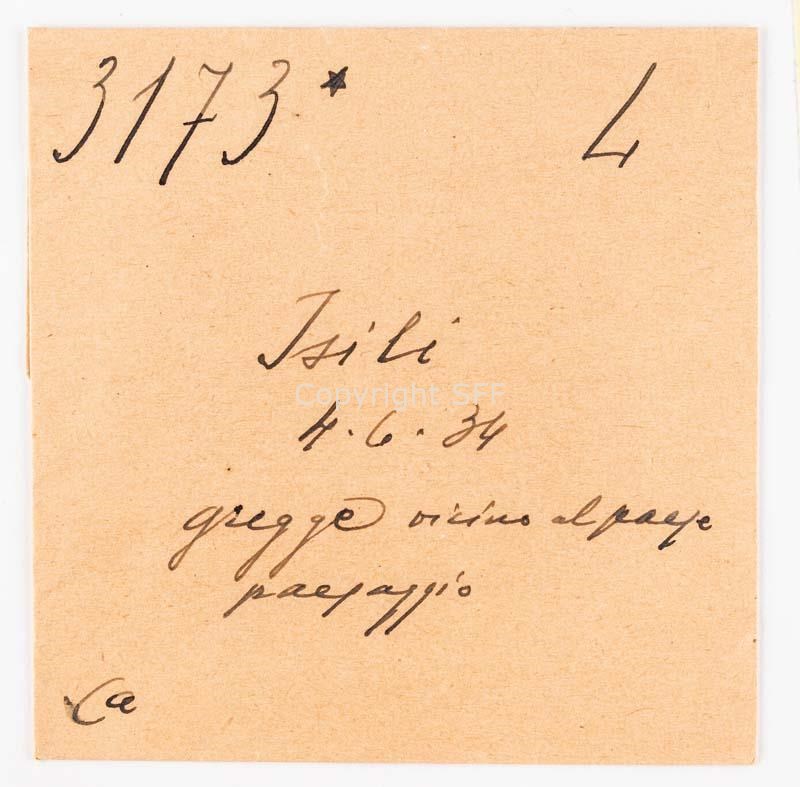 3173* L
Isili
Copyright SFF
4.6.34
gregge vicino al paese
paesaggio
Ca